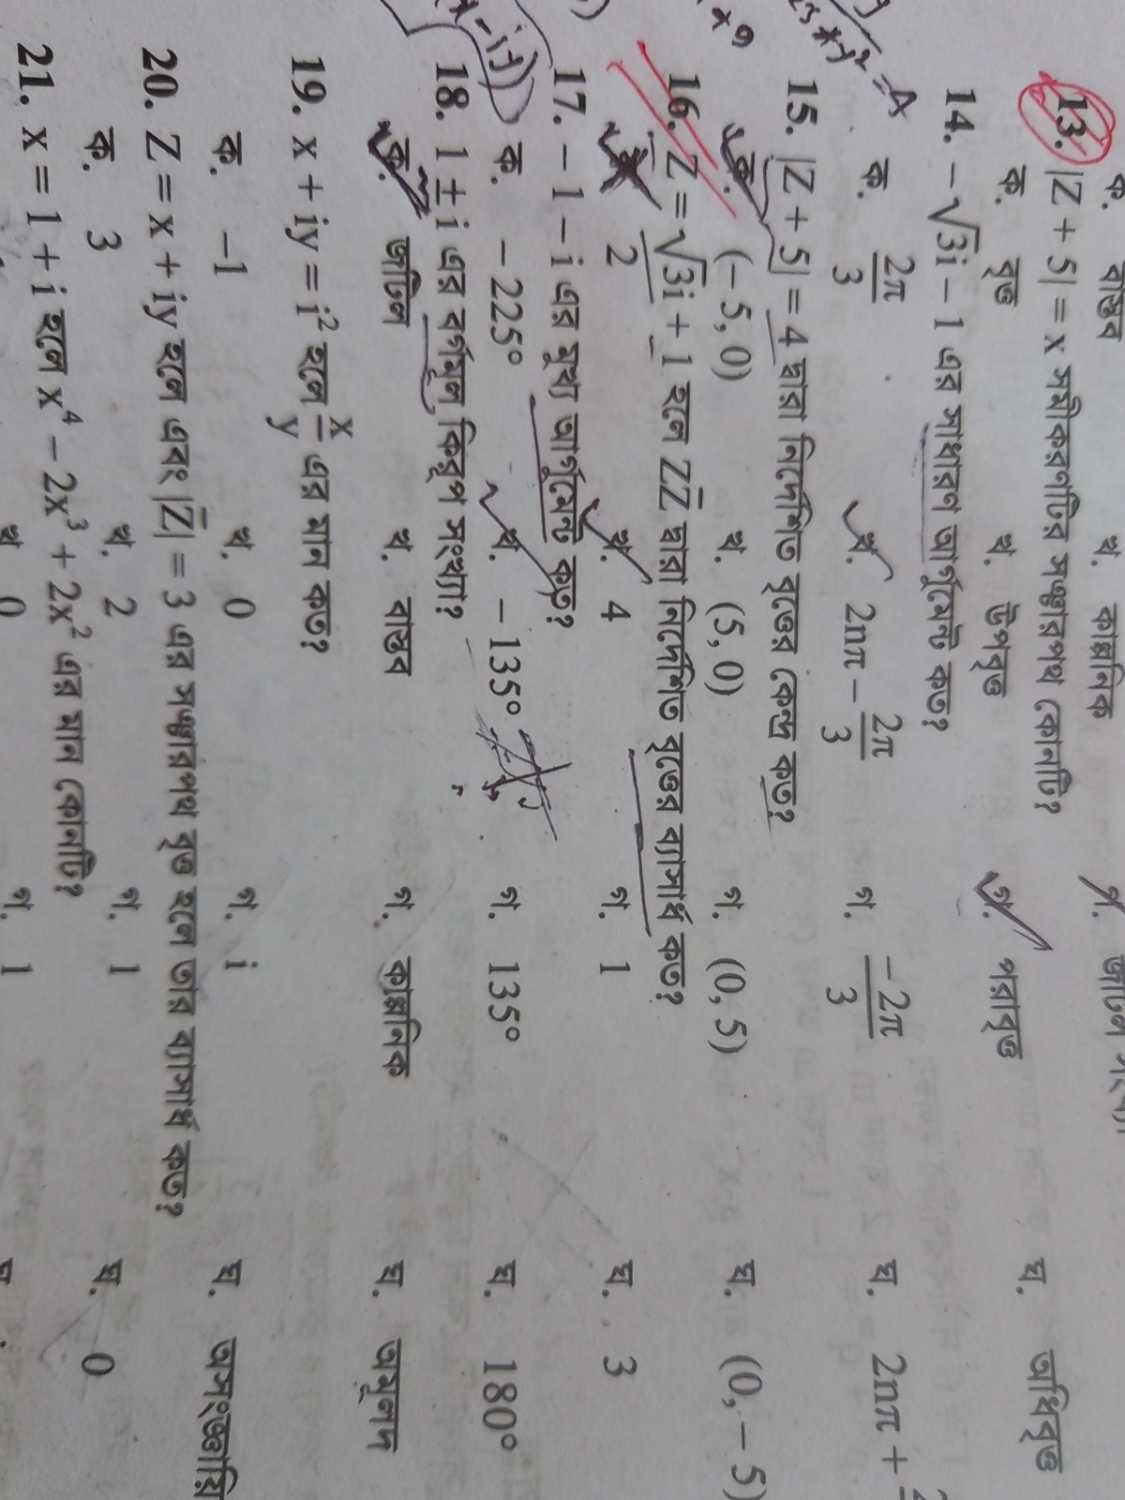 ক. বাস্তব খ. কাল্পনিক গ. জটিল
13. |Z + 5| = x সমীকরণটির সঞ্চারপথ কোনটি?
ক. বৃত্ত খ. উপবৃত্ত গ. পরাবৃত্ত ঘ. অধিবৃত্ত
14. – √3i – 1 এর সাধারণ আর্গুমেন্ট কত?
ক. 2π/3 খ. 2nπ – 2π/3 গ. –2π/3 ঘ. 2nπ +
15. |Z + 5| = 4 দ্বারা নির্দেশিত বৃত্তের কেন্দ্র কত?
ক. (– 5, 0) খ. (5, 0) গ. (0, 5) ঘ. (0, – 5)
16. Z = √3i + 1 হলে ZZ̄ দ্বারা নির্দেশিত বৃত্তের ব্যাসার্ধ কত?
ক. 2 খ. 4 গ. 1 ঘ. 3
17. – 1 – i এর মুখ্য আর্গুমেন্ট কত?
ক. – 225° খ. – 135° গ. 135° ঘ. 180°
18. 1 ± i এর বর্গমূল কিরূপ সংখ্যা?
ক. জটিল খ. বাস্তব গ. কাল্পনিক ঘ. অমূলদ
19. x + iy = i² হলে x/y এর মান কত?
ক. –1 খ. 0 গ. i ঘ. অসংজ্ঞায়ি
20. Z = x + iy হলে এবং |Z̄| = 3 এর সঞ্চারপথ বৃত্ত হলে তার ব্যাসার্ধ কত?
ক. 3 খ. 2 গ. 1 ঘ. 0
21. x = 1 + i হলে x⁴ – 2x³ + 2x² এর মান কোনটি?
খ 0 গ. 1